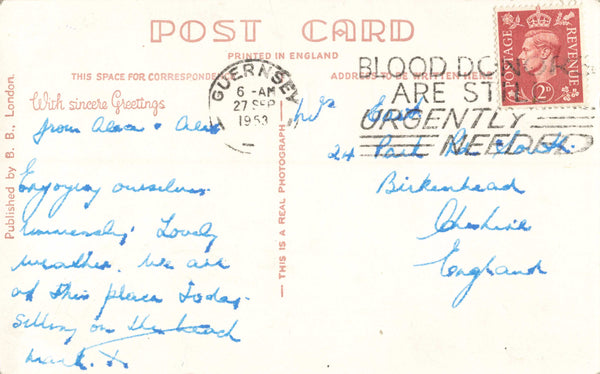 POST CARD
PRINTED IN ENGLAND
THIS SPACE FOR CORRESPONDENCE
ADDRESS TO BE WRITTEN HERE
Published by B. B., London.
With sincere Greetings
from Alan & Alec
Enjoying ourselves
immensely. Lovely
weather. We are
at this place today.
Sitting on the beach
THIS IS A REAL PHOTOGRAPH
GUERNSEY
6 - AM
27 SEP
1953
BLOOD DONORS
ARE STILL
URGENTLY
NEEDED
POSTAGE
REVENUE
2D
24 Park Rd South
Birkenhead
Cheshire
England